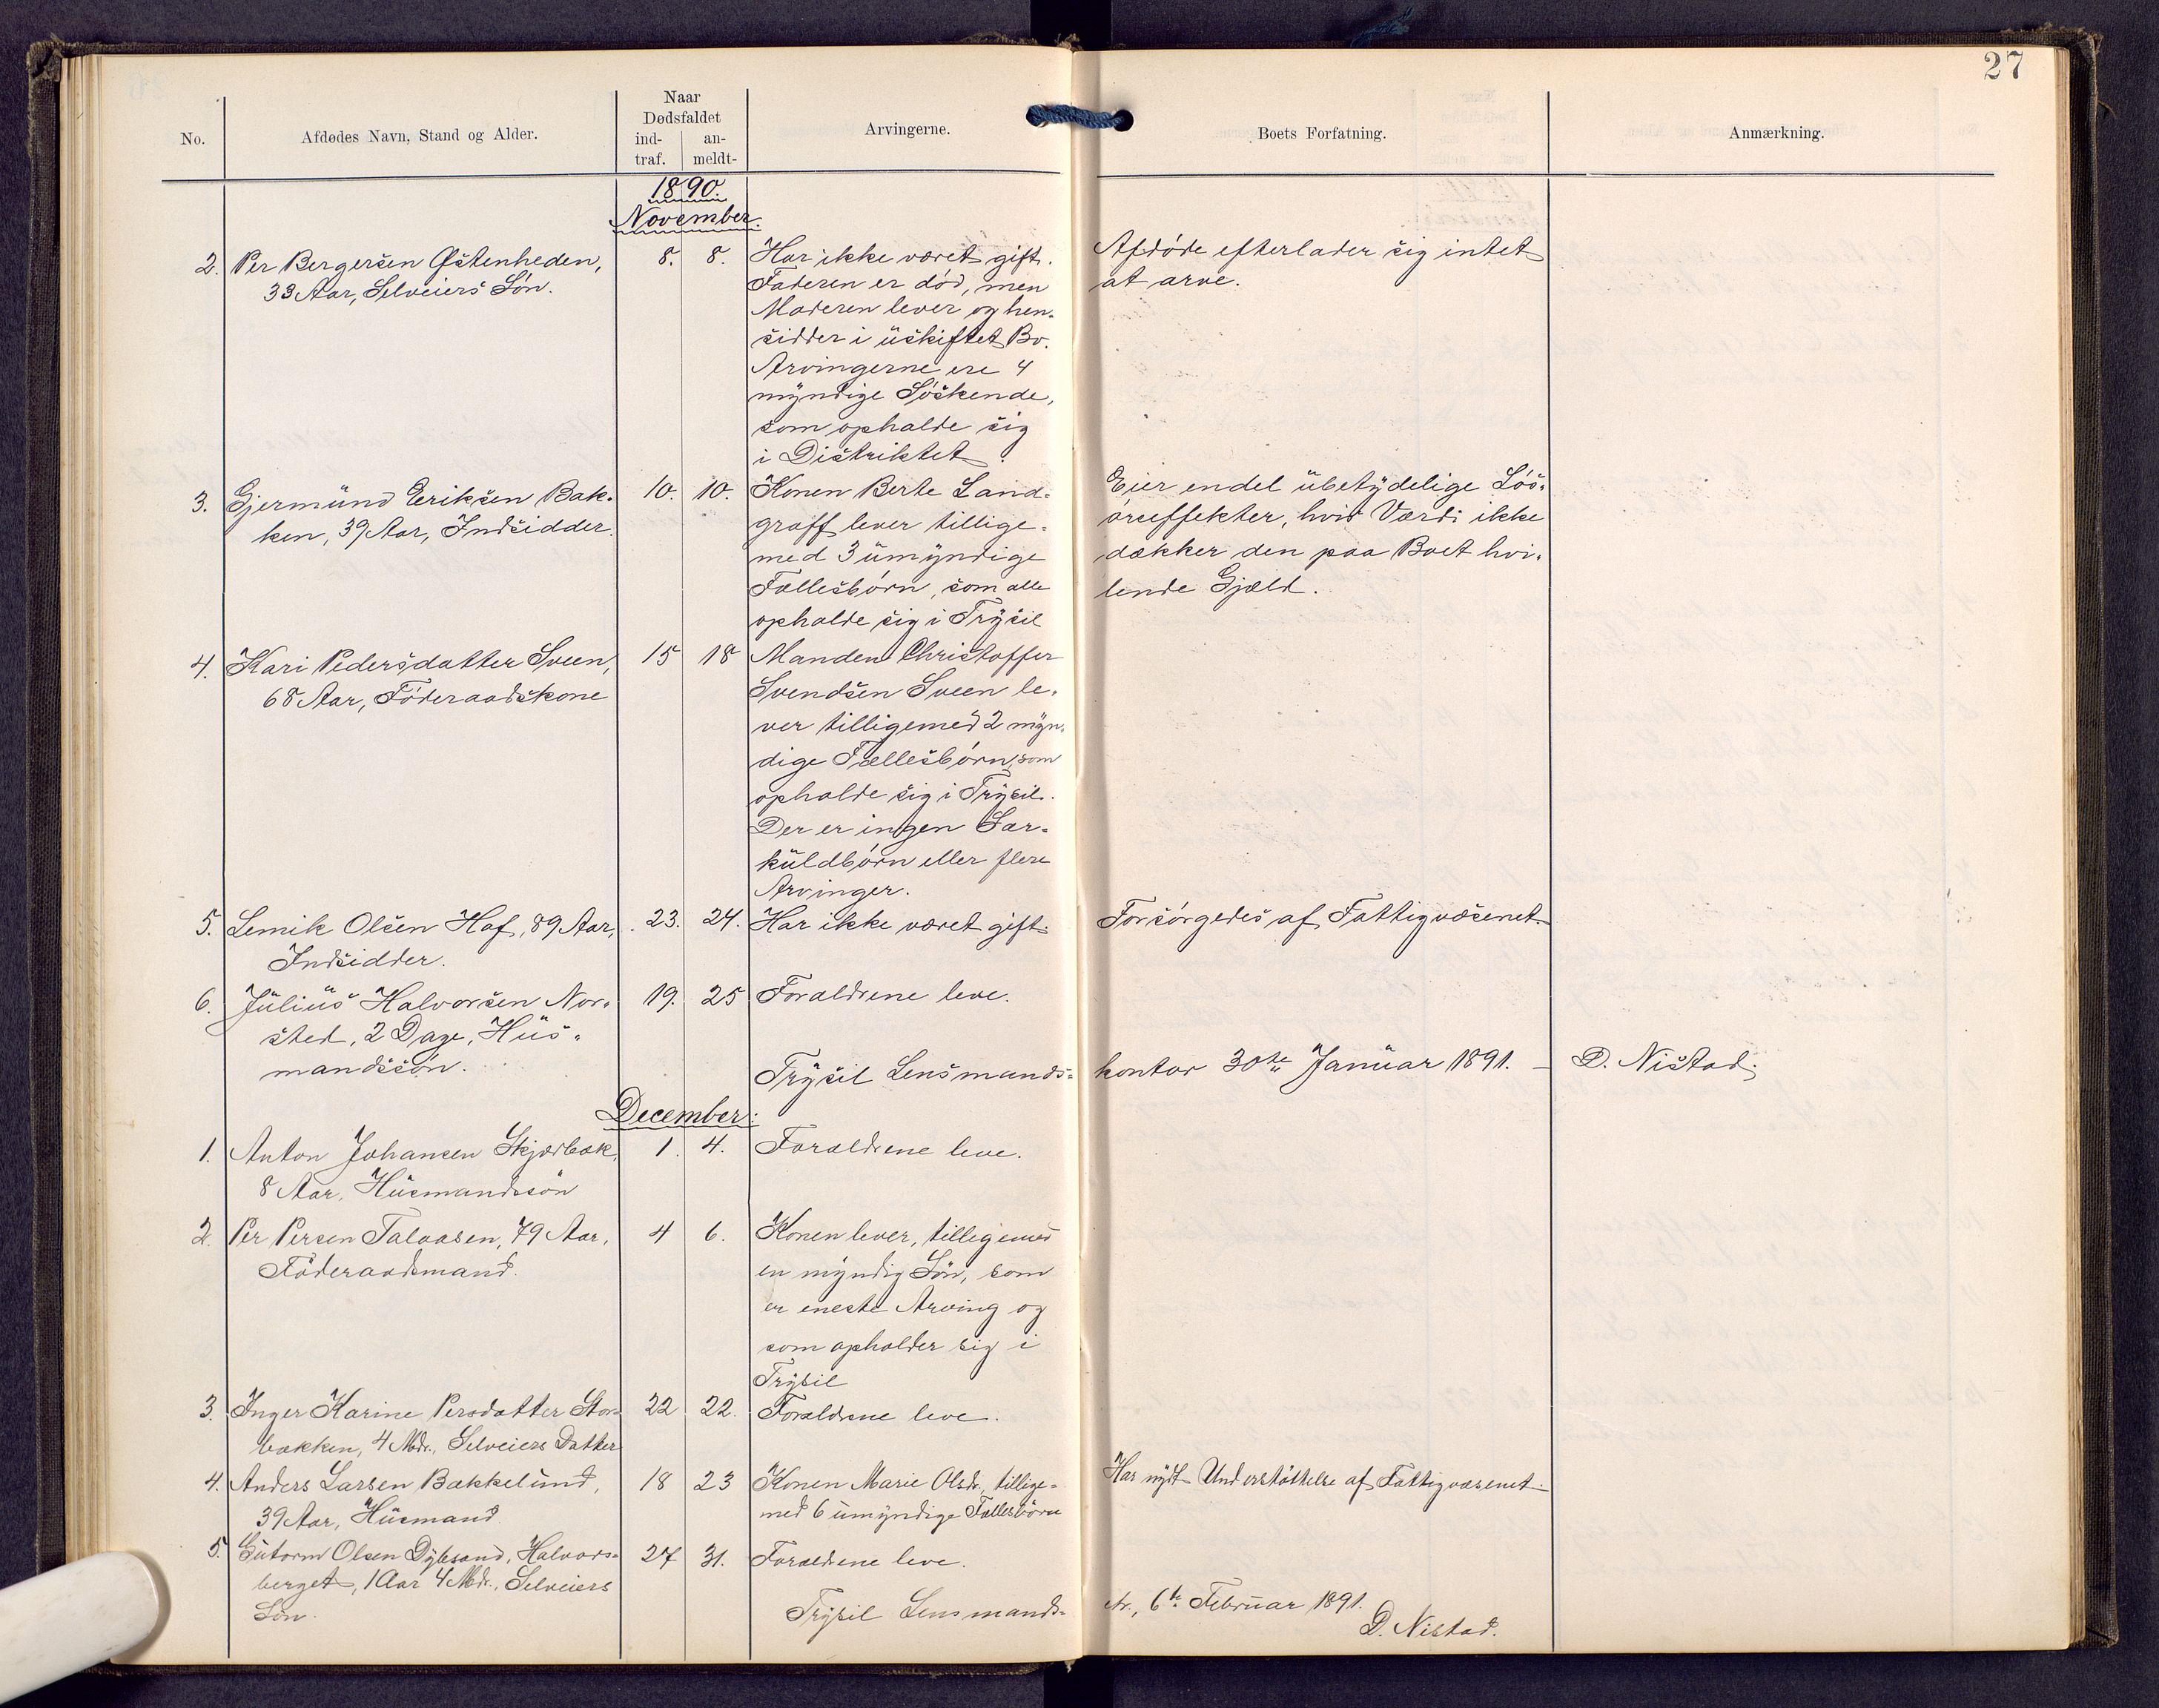 27
No.
Afdødes Navn, Stand og Alder.
Naar
Dødsfaldet
ind-
traf.
an-
meldt-
Arvingerne.
Boets Forfatning.
Anmærkning.
1890.
November.
2. Per Bergersen Østenheden, 8. 8. Har ikke været gift. Afdøde efterlader sig intet
33 Aar, Selveiers Søn. Faderen er død, men at arve.
Moderen lever og hen-
sidder i uskiftet Bo.
Arvingerne ere 4
myndige Søskende,
som opholde sig
i Distriktet.
3. Gjermund Eriksen Bak- 10. 10. Konen Berte Land- Eier endel ubetydelige Løs-
ken, 39 Aar, Indsidder. graff lever tillige- øreeffekter, hvis Værdi ikke
med 3 umyndige dækker den paa Boet hvi-
Fællesbørn, som alle lende Gjæld.
opholde sig i Trysil
4. Kari Pedersdatter Sveen, 15 18 Manden Christoffer
68 Aar, Føderaadskone Svendsen Sveen le-
ver tilligemed 2 myn-
dige Fællesbørn, som
opholde sig i Trysil.
Der er ingen Sær-
kuldbørn eller flere
Arvinger.
5. Lemik Olsen Hof, 89 Aar, 23. 24. Har ikke været gift. Forsørgedes af Fattigvæsenet.
Indsidder.
6. Julius Halvorsen Nor- 19. 25 Forældrene leve.
sted, 2 Dage, Hus-
mandssøn. Trysil Lensmands- kontor 30te Januar 1891. – D. Nistad.
December:
1. Anton Johansen Skjærbæk, 1. 4. Forældrene leve.
8 Aar, Husmandssøn
2. Per Persen Talaasen, 79 Aar, 4 6. Konen lever, tilligemed
Føderaadsmand. en myndig Søn, som
er eneste Arving og
som opholder sig i
Trysil
3. Inger Karine Persdatter Stor- 22 22. Forældrene leve.
bakken, 4 Mdr., Selveiers Datter
4. Anders Larsen Bakkelund, 18 23 Konen Marie Olsdr., tillige- Har nydt Understøttelse af Fattigvæsenet.
39 Aar, Husmand med 6 umyndige Fællesbørn
5. Gutorm Olsen Dybsand, Halvors- 27 31. Forældrene leve.
berget, 1 Aar 4 Mdr., Selveiers
Søn. Trysil Lensmands- 6te Februar 1891.
D. Nistad.